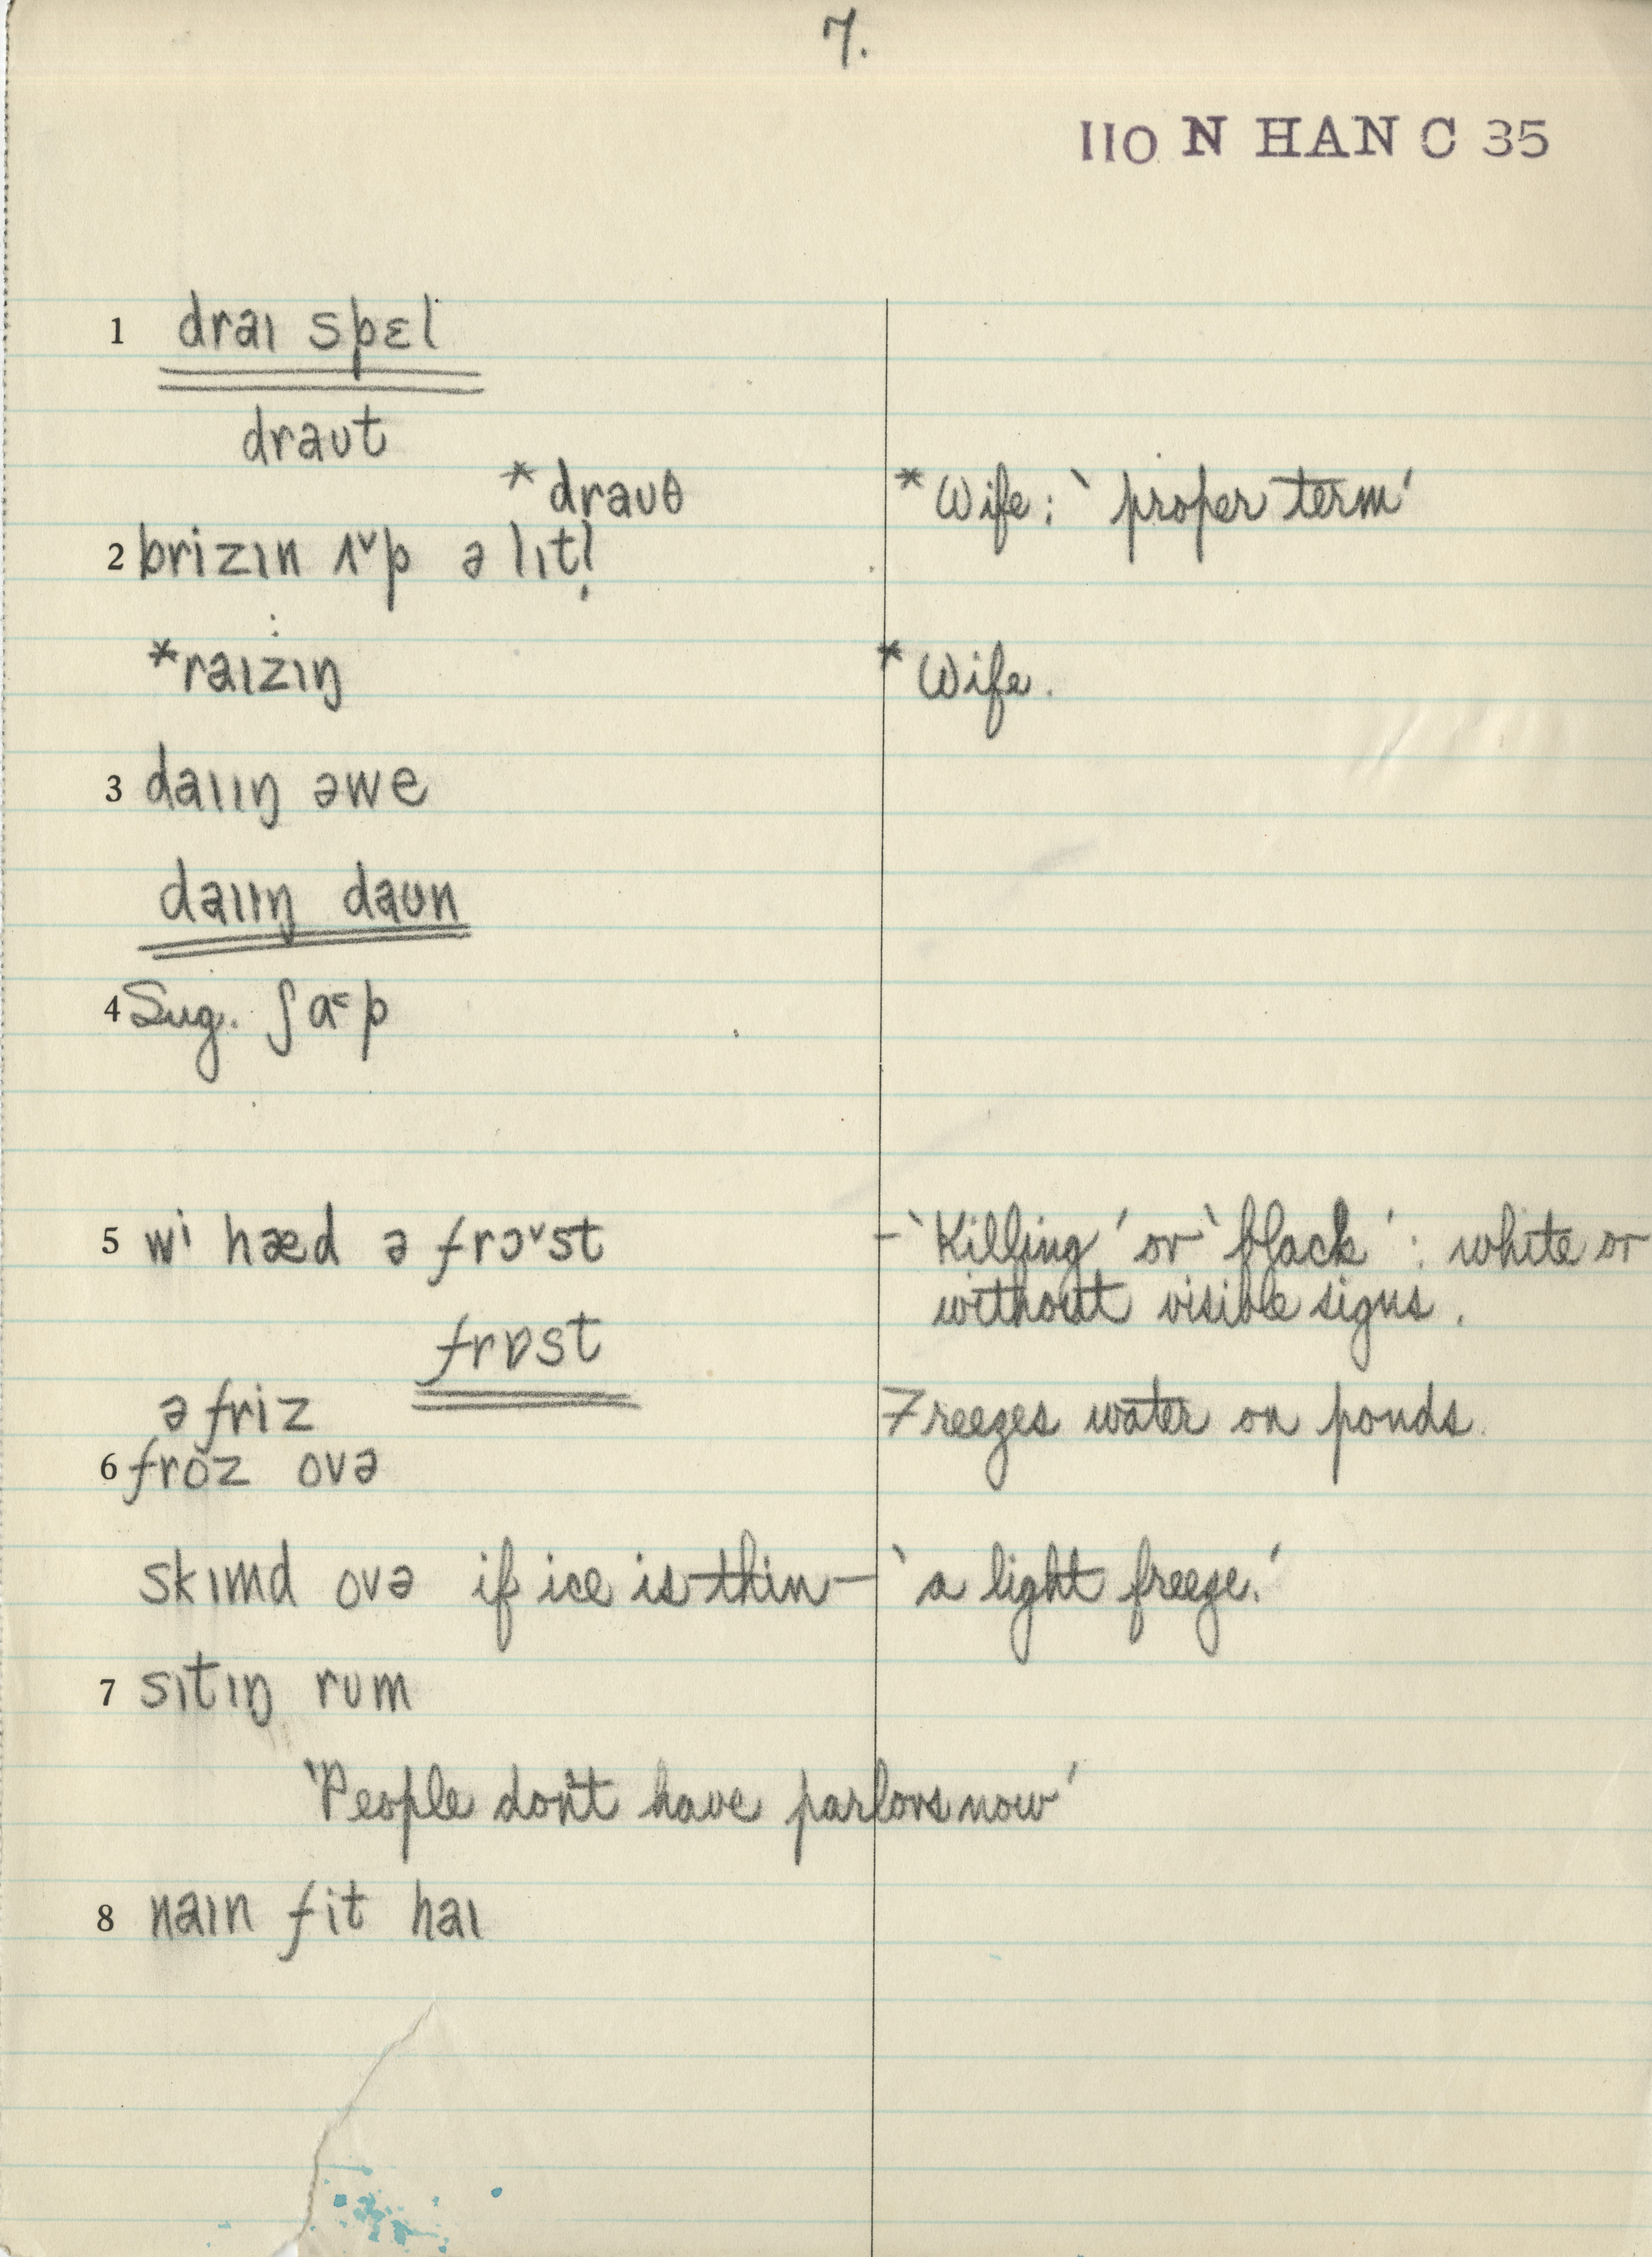 7.
110 N HAN C 35
1 draɪ spɛl
draʊt
*draʊθ *Wife: ‘proper term’
2 brizɪn ʌ˅p ə lɪtl̩
*raɪzɪŋ *Wife.
3 daɪɪŋ əwe
daɪɪŋ daʊn
4 Sug. ʃɑ˂p
5 wi hæd ə frɔ˅st - ‘Killing’ or ‘black’: white or
without visible signs.
frɒst
ə friz Freezes water on ponds.
6 froz ovə
skɪmd ovə if ice is thin - ‘a light freeze.’
7 sɪtɪŋ rʊm
‘People don't have parlors now’
8 naɪn fit haɪ